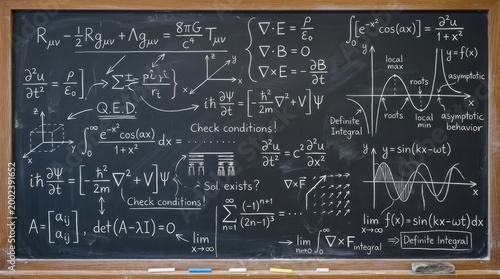 R_μν − 1/2 Rg_μν + Λg_μν = 8πG/c⁴ T_μν
∇·E = ρ/ε₀
∇·B = 0
∇×E = −∂B/∂t
∫[e^(-x²) cos(ax)] = ∂²u/1+x²
y=f(x)
local max
roots
asymptotic
Definite Integral
roots
local min
asymptotic behavior
∂²u/∂t = [ρ/ε₀]
Q.E.D.
iħ ∂Ψ/∂t = [−ħ²/2m ∇²+V]Ψ
z
x
y
∫₀^∞ e^(-x²)cos(ax)/1+x² dx =
Check conditions!
∂²u/∂t² = c² ∂²u/∂x²
y=sin(kx−ωt)
iħ ∂Ψ/∂t = [−ħ²/2m ∇²+V]Ψ
Sol. exists?
∇×F
Check conditions!
A = [a_ij a_ij], det(A−λI)=0
lim x→∞
∑ n=1 ∞ (−1)^(n+1)/(2n−1)³ =
lim x→∞ f(x)=sin(kx−ωt)dx
lim n→0 ∫∇×F integral ⇒ Definite Integral